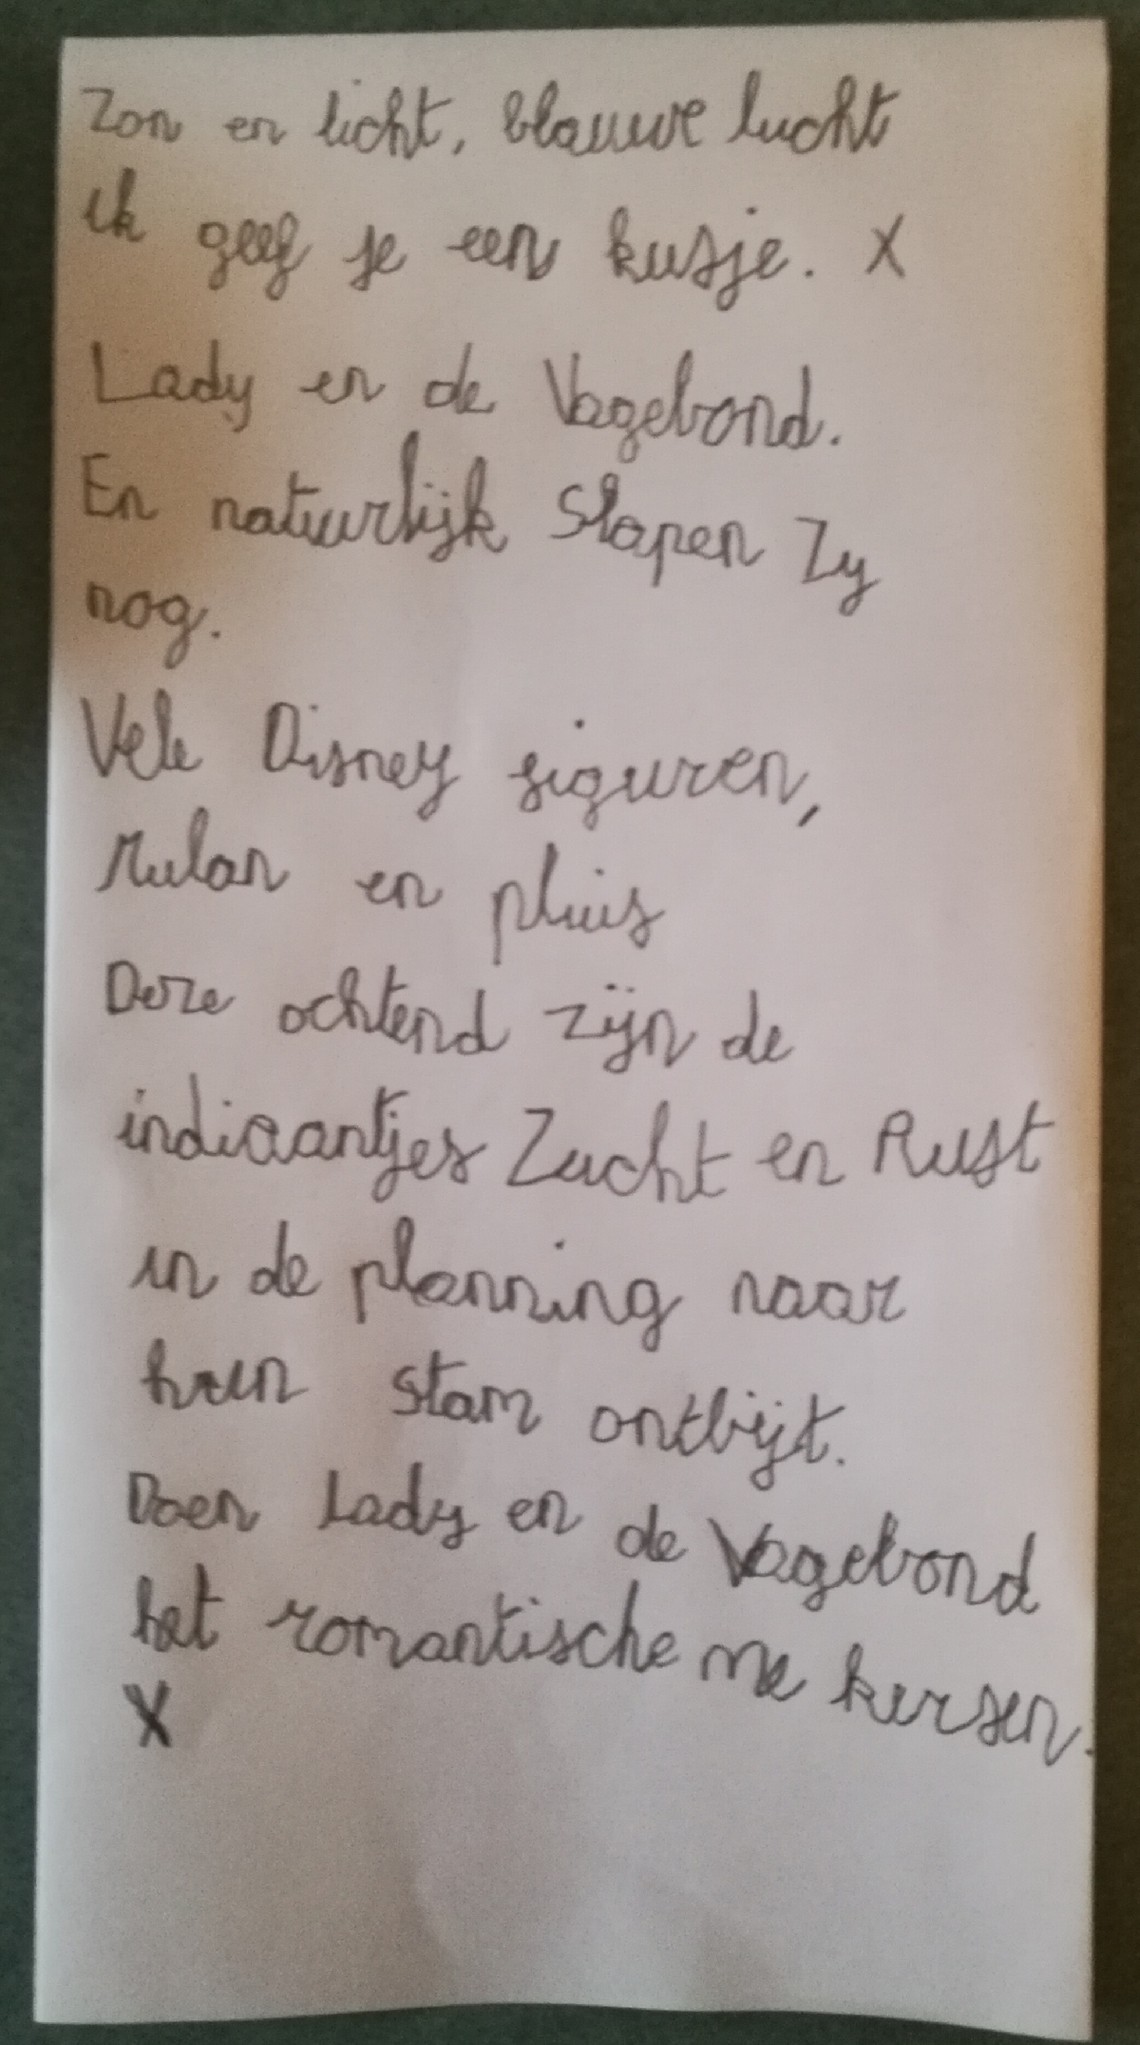 Zon en licht, blauwe lucht
ik geef je een kusje. X
Lady en de Vagebond.
En natuurlijk slapen Zy
nog.
Vele Disney figuren,
Mulan en pluis
Deze ochtend zijn de
indiaantjes Zucht en Rust
in de planning naar
hun stam ontbijt.
Doen Lady en de Vagebond
het romantische me kersen.
X